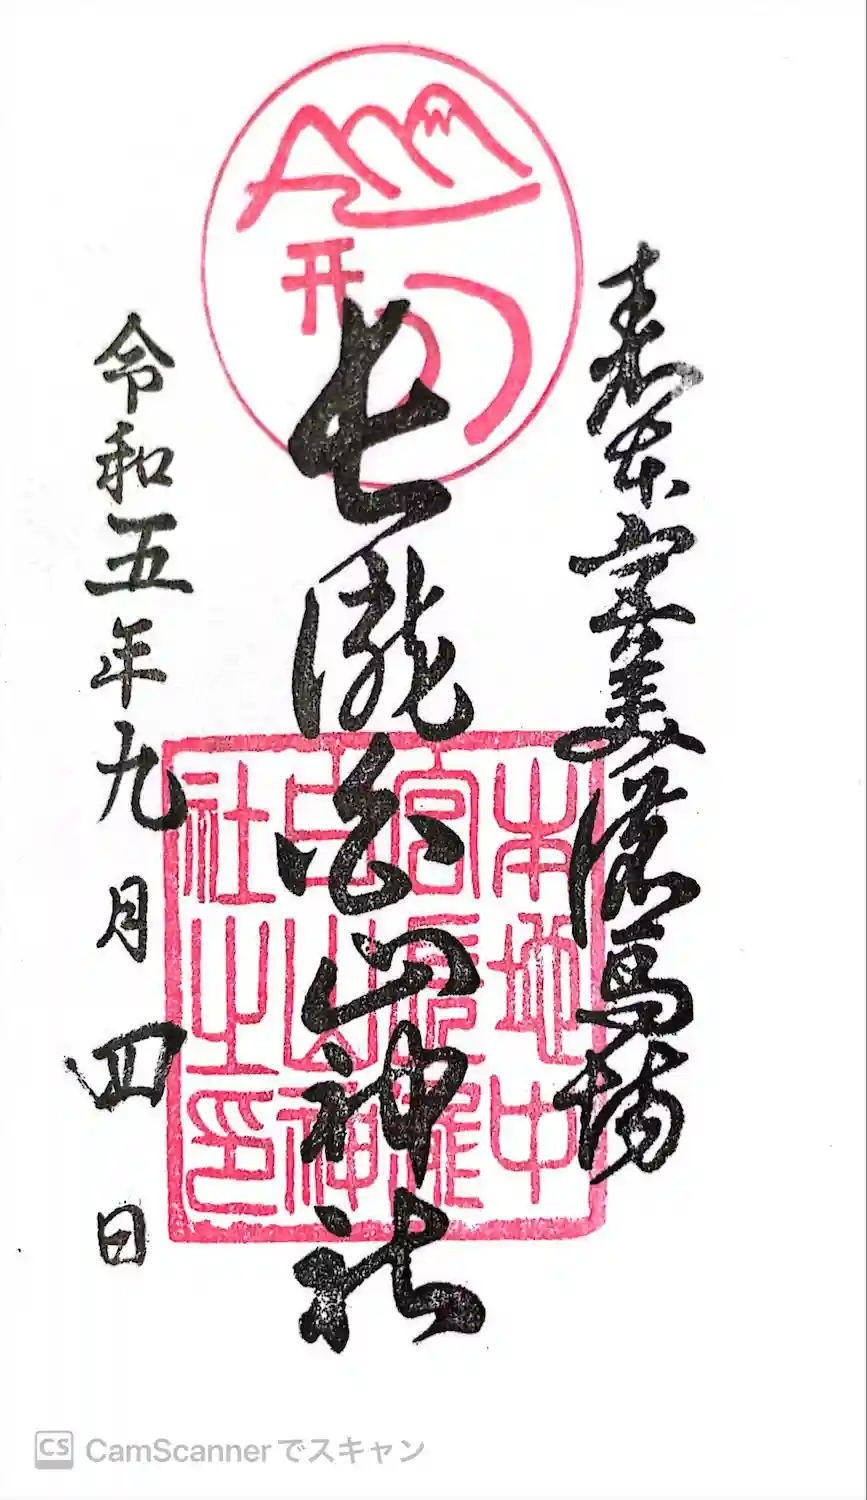 表本宮美濃馬場
長瀧白山神社
令和五年九月四日
本地中
宮長瀧
白山神
社之印
CS CamScannerでスキャン